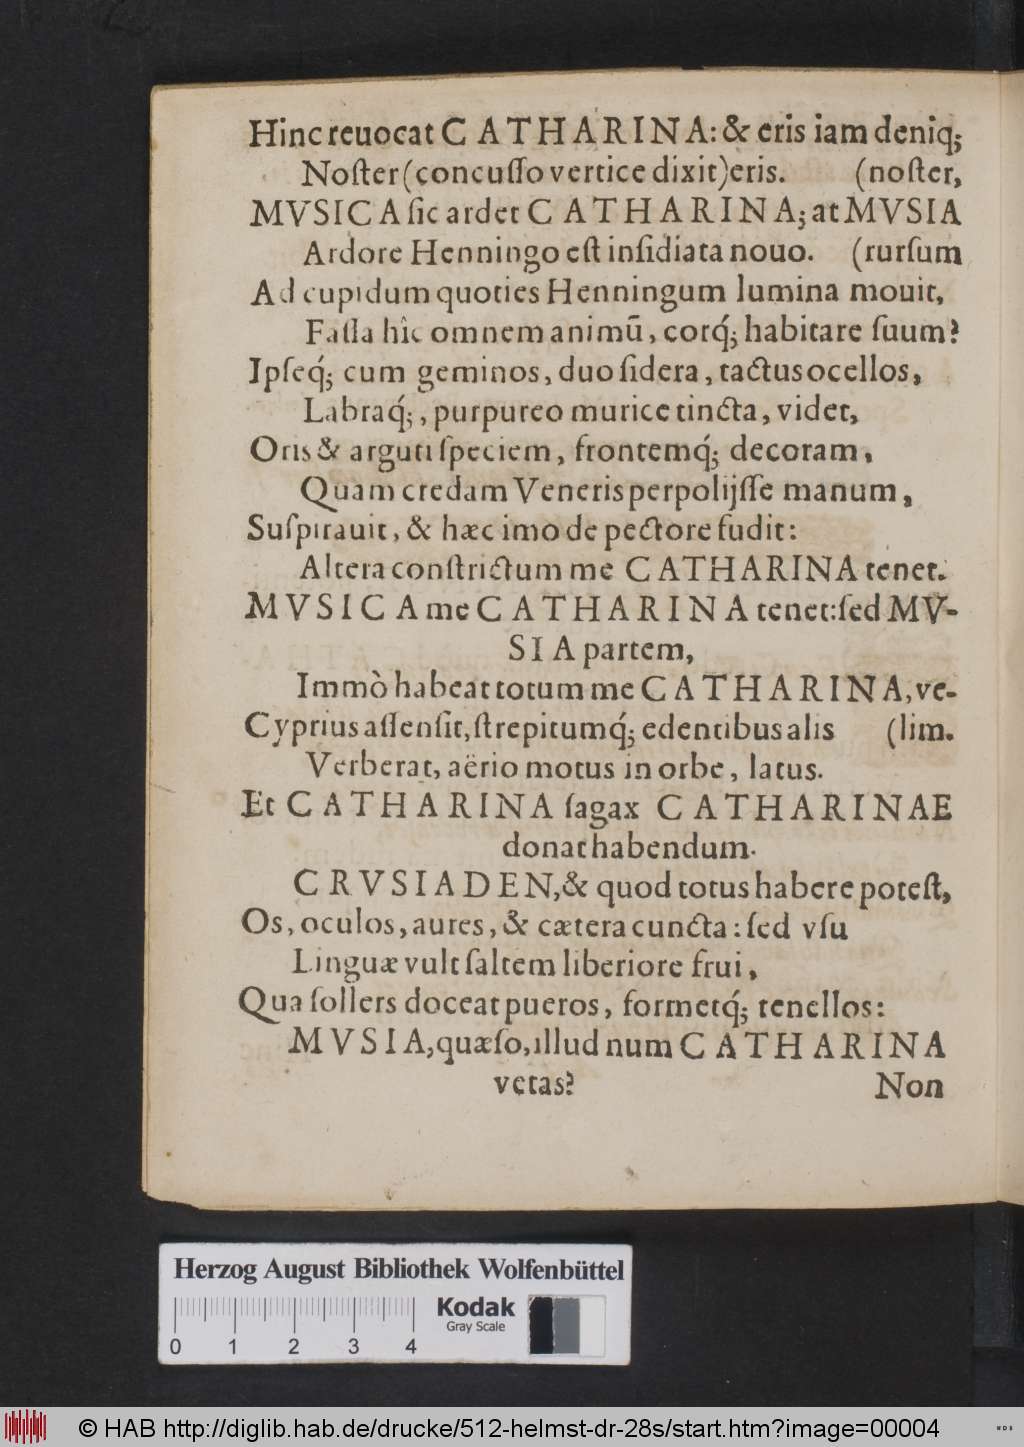 Hinc reuocat CATHARINA: & eris iam deniq;
Noſter (concuſſo vertice dixit) eris. (noſter,
MVSICA ſic ardet CATHARINA; at MVSIA
Ardore Henningo eſt inſidiata nouo. (rurſum
Ad cupidum quoties Henningum lumina mouit,
Faſſa hîc omnem animū, corq́; habitare ſuum?
Ipſeq́; cum geminos, duo ſidera, tactus ocellos,
Labraq́;, purpureo murice tincta, videt,
Oris & arguti ſpeciem, frontemq́; decoram,
Quam credam Veneris perpolijſſe manum,
Suſpirauit, & hæc imo de pectore fudit:
Altera conſtrictum me CATHARINA tenet.
MVSICA me CATHARINA tenet: ſed MV-
SIA partem,
Immò habeat totum me CATHARINA, ve-
Cyprius aſſenſit, ſtrepitumq́; edentibus alis (lim.
Verberat, aërio motus in orbe, latus.
Et CATHARINA ſagax CATHARINAE
donat habendum.
CRVSIADEN, & quod totus habere poteſt,
Os, oculos, aures, & cætera cuncta: ſed vſu
Linguæ vult ſaltem liberiore frui,
Qua ſollers doceat pueros, formetq́; tenellos:
MVSIA, quæſo, illud num CATHARINA
vetas? Non
Herzog August Bibliothek Wolfenbüttel
Kodak
Gray Scale
0 1 2 3 4
© HAB http://diglib.hab.de/drucke/512-helmst-dr-28s/start.htm?image=00004